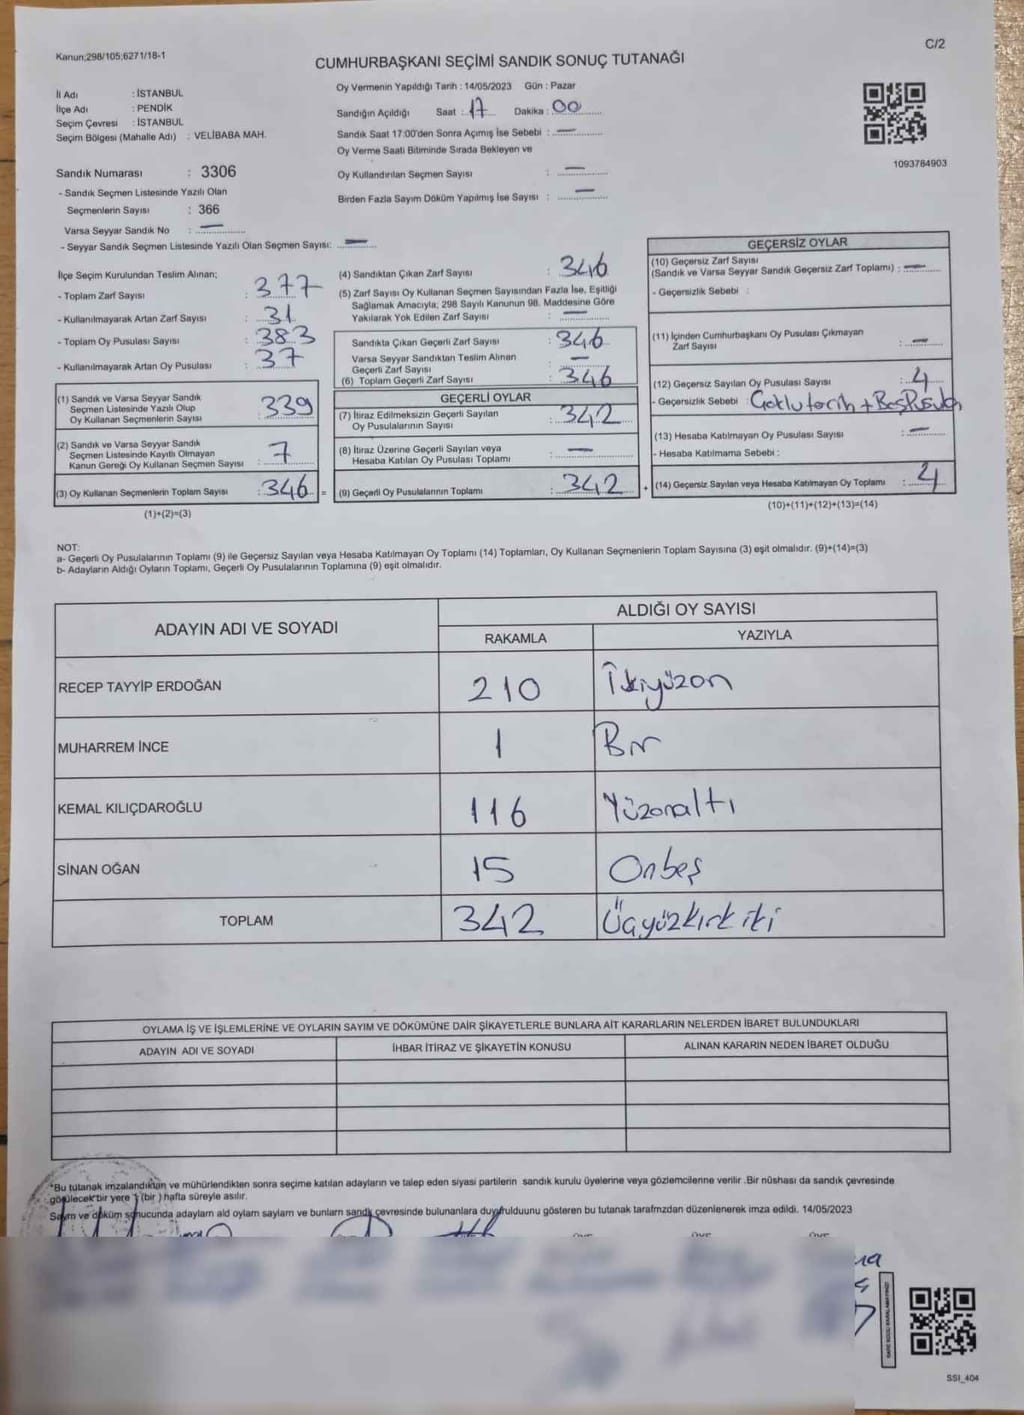 Kanun;298/105;6271/18-1
C/2
CUMHURBAŞKANI SEÇİMİ SANDIK SONUÇ TUTANAĞI
Oy Vermenin Yapıldığı Tarih : 14/05/2023 Gün : Pazar
İl Adı : İSTANBUL
İlçe Adı : PENDİK
Seçim Çevresi : İSTANBUL
Seçim Bölgesi (Mahalle Adı) : VELİBABA MAH.
Sandığın Açıldığı Saat : 17 Dakika : 00
Sandık Saat 17:00'den Sonra Açımış İse Sebebi : —
Oy Verme Saati Bitiminde Sırada Bekleyen ve
Oy Kullandırılan Seçmen Sayısı : —
Birden Fazla Sayım Döküm Yapılmış İse Sayısı : —
1093784903
Sandık Numarası : 3306
- Sandık Seçmen Listesinde Yazılı Olan
Seçmenlerin Sayısı : 366
Varsa Seyyar Sandık No : —
- Seyyar Sandık Seçmen Listesinde Yazılı Olan Seçmen Sayısı: —
İlçe Seçim Kurulundan Teslim Alınan;
- Toplam Zarf Sayısı : 377
- Kullanılmayarak Artan Zarf Sayısı : 31
- Toplam Oy Pusulası Sayısı : 383
- Kullanılmayarak Artan Oy Pusulası : 37
(1) Sandık ve Varsa Seyyar Sandık
Seçmen Listesinde Yazılı Olup
Oy Kullanan Seçmenlerin Sayısı : 339
(2) Sandık ve Varsa Seyyar Sandık
Seçmen Listesinde Kayıtlı Olmayan
Kanun Gereği Oy Kullanan Seçmen Sayısı : 7
(3) Oy Kullanan Seçmenlerin Toplam Sayısı : 346 =
(1)+(2)=(3)
(4) Sandıktan Çıkan Zarf Sayısı : 346
(5) Zarf Sayısı Oy Kullanan Seçmen Sayısından Fazla İse, Eşitliği
Sağlamak Amacıyla; 298 Sayılı Kanunun 98. Maddesine Göre
Yakılarak Yok Edilen Zarf Sayısı : —
Sandıkta Çıkan Geçerli Zarf Sayısı : 346
Varsa Seyyar Sandıktan Teslim Alınan
Geçerli Zarf Sayısı : —
(6) Toplam Geçerli Zarf Sayısı : 346
GEÇERLİ OYLAR
(7) İtiraz Edilmeksizin Geçerli Sayılan
Oy Pusulalarının Sayısı : 342
(8) İtiraz Üzerine Geçerli Sayılan veya
Hesaba Katılan Oy Pusulası Toplamı : —
(9) Geçerli Oy Pusulalarının Toplamı : 342 +
GEÇERSİZ OYLAR
(10) Geçersiz Zarf Sayısı
(Sandık ve Varsa Seyyar Sandık Geçersiz Zarf Toplamı) : —
- Geçersizlik Sebebi :
(11) İçinden Cumhurbaşkanı Oy Pusulası Çıkmayan
Zarf Sayısı : —
(12) Geçersiz Sayılan Oy Pusulası Sayısı : 4
- Geçersizlik Sebebi :
(13) Hesaba Katılmayan Oy Pusulası Sayısı : —
- Hesaba Katılmama Sebebi :
(14) Geçersiz Sayılan veya Hesaba Katılmayan Oy Toplamı : 4
(10)+(11)+(12)+(13)=(14)
NOT:
a- Geçerli Oy Pusulalarının Toplamı (9) ile Geçersiz Sayılan veya Hesaba Katılmayan Oy Toplamı (14) Toplamları, Oy Kullanan Seçmenlerin Toplam Sayısına (3) eşit olmalıdır. (9)+(14)=(3)
b- Adayların Aldığı Oyların Toplamı, Geçerli Oy Pusulalarının Toplamına (9) eşit olmalıdır.
ADAYIN ADI VE SOYADI
ALDIĞI OY SAYISI
RAKAMLA YAZIYLA
RECEP TAYYİP ERDOĞAN 210 İkiyüzon
MUHARREM İNCE 1 Bir
KEMAL KILIÇDAROĞLU 116 Yüzonaltı
SİNAN OĞAN 15 Onbeş
TOPLAM 342 Üçyüzkırkiki
OYLAMA İŞ VE İŞLEMLERİNE VE OYLARIN SAYIM VE DÖKÜMÜNE DAİR ŞİKAYETLERLE BUNLARA AİT KARARLARIN NELERDEN İBARET BULUNDUKLARI
ADAYIN ADI VE SOYADI İHBAR İTİRAZ VE ŞİKAYETİN KONUSU ALINAN KARARIN NEDEN İBARET OLDUĞU
*Bu tutanak imzalandıktan ve mühürlendikten sonra seçime katılan adayların ve talep eden siyasi partilerin sandık kurulu üyelerine veya gözlemcilerine verilir .Bir nüshası da sandık çevresinde
görülecek bir yere 1 (bir) hafta süreyle asılır.
Sayım ve döküm sonucunda adayların ald oyların sayların ve bunların sandık çevresinde bulunanlara duyrulduunu gösteren bu tutanak tarafmzdan düzenlenerek imza edildi. 14/05/2023
SSI_404